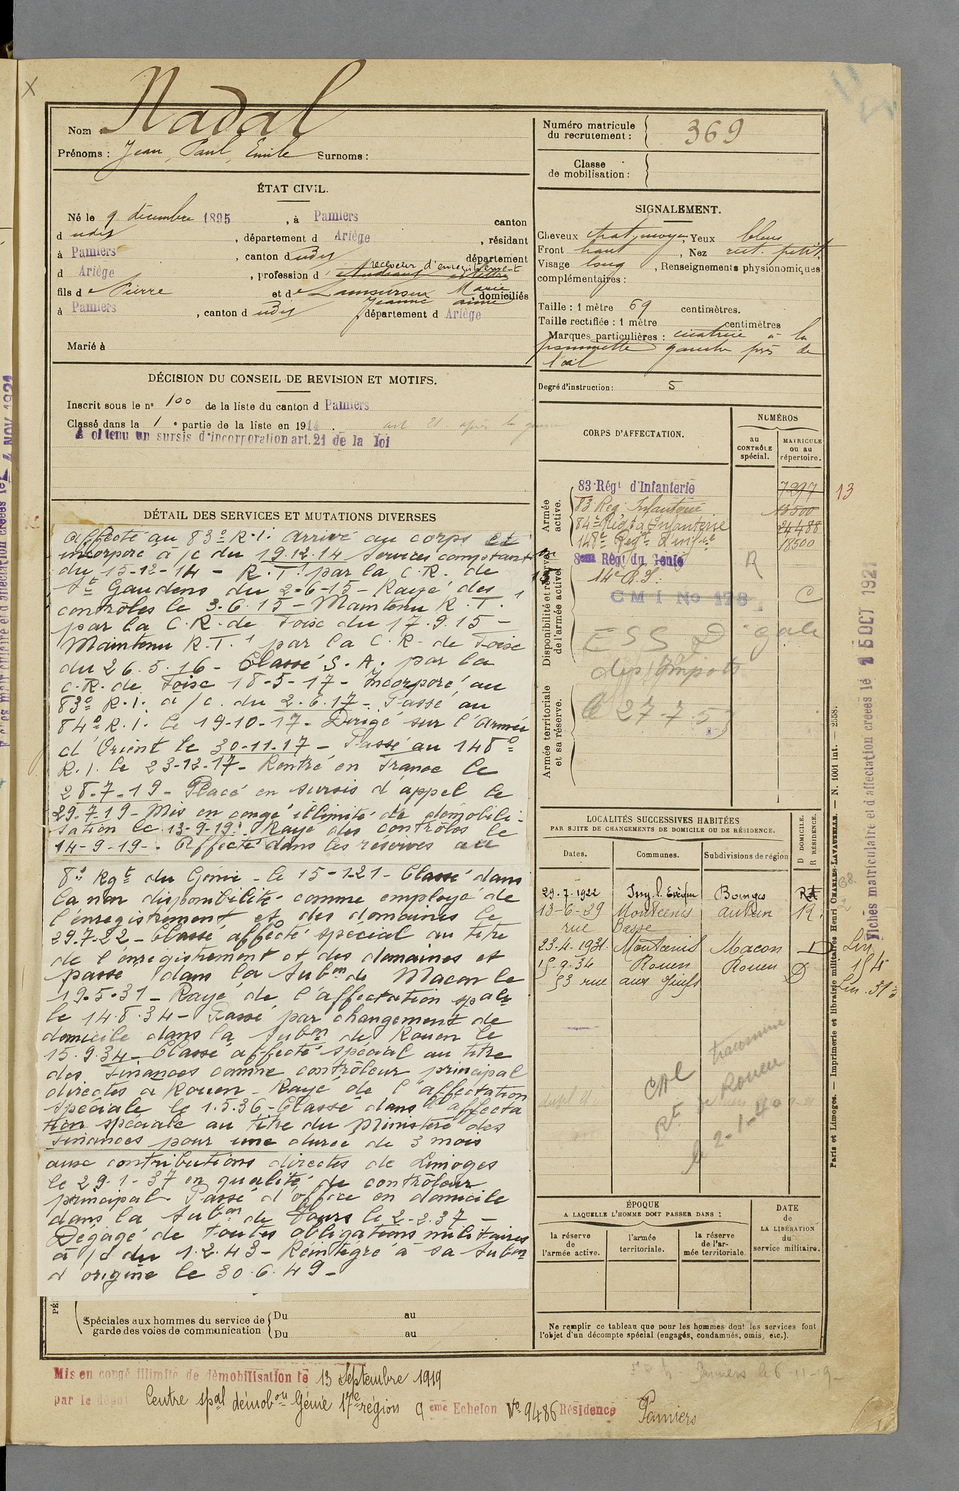 Nom : Nadal
Prénoms : Jean, Paul, Emile Surnoms :
Numéro matricule du recrutement : 369
Classe de mobilisation :
ÉTAT CIVIL.
Né le 9 décembre 1895, à Pamiers canton
d udit, département d Ariège, résidant
à Pamiers, canton d udit département
d Ariège, profession d receveur d'enregistrement
fils de Pierre et de Marie Jeanne domiciliés
à Pamiers, canton d udit département d Ariège
Marié à
SIGNALEMENT.
Cheveux chat. moyen, Yeux bleus
Front haut, Nez rect. petit
Visage long, Renseignements physionomiques
complémentaires :
Taille : 1 mètre 69 centimètres.
Taille rectifiée : 1 mètre centimètres
Marques particulières : cicatrice à la
pommette gauche près de
l'œil
Degré d'instruction : 5
DÉCISION DU CONSEIL DE REVISION ET MOTIFS.
Inscrit sous le n° 100 de la liste du canton d Pamiers
Classé dans la 1e partie de la liste en 1914. art 21. après la guerre
A obtenu un sursis d'incorporation art. 21 de la loi
CORPS D'AFFECTATION.
NUMÉROS
au CONTRÔLE spécial.
MATRICULE ou au répertoire.
Armée active.
83 Régt d'Infanterie 7297 13
83 Reg Infanterie
84e Régt d'Infanterie
148e Regt Infie
Disponibilité et réserve de l'armée active.
8eme Régt du Genie R
CMI No 178 C
ESS D gale
des Impots
Armée territoriale et sa réserve.
27.7.53
DÉTAIL DES SERVICES ET MUTATIONS DIVERSES
Affecté au 83e R.I. arrivé au corps et
incorporé à /c du 19.12.14 Services comptant
du 15-12-14 - R.T.1 par la C.R. de
St Gaudens du 2-6-15 - Rayé des
contrôles le 3.6.15 - Maintenu R.T.1
par la C.R. de Foix du 17.9.15 -
Maintenu R.T.1 par la C.R. de Foix
du 26.5.16 - Classé S.A. par la
C.R. de Foix 18-5-17 - Incorporé au
83e R.I. à /c. du 2.6.17 - Passé au
84e R.I. le 19-10-17 - Dirigé sur l'Armée
d'Orient le 30-11.17 - Passé au 148e
R.I. le 23-12-17 - Rentré en France le
28-7-19 - Placé en sursis d'appel le
29.7.19 - Mis en congé illimité de démobili-
sation le 13-9-19. Rayé des contrôles le
14-9-19 -. Affecté dans les réserves au
8e Rgt du Génie - le 15-1-21 - Classé dans
la non disponibilité comme employé de
l'enregistrement et des domaines le
29.7.22 - Classé affecté spécial au titre
de l'enregistrement et des domaines et
passé dans la Subon de Macon le
19.5.31 - Rayé de l'affectation spale
le 14.8.34 - Passé par changement de
domicile dans la Subon de Rouen le
15.9.34 - Classé affecté spécial au titre
des Finances comme contrôleur principal
directes à Rouen Rayé de l'affectation
spéciale le 1.5.36 - Classé dans l'affecta
tion spéciale au titre du Ministère des
Finances pour une durée de 3 mois
aux contributions directes de Limoges
le 29-1-37 en qualité de contrôleur
principal - Passé d'office en domicile
dans la Subon de Tours le 2-2.37 -
Dégagé de toutes obligations militaires
à /c du 1.2.43 - Réintégré à sa Subon
d'origine le 30.6.49 -
LOCALITÉS SUCCESSIVES HABITÉES
PAR SUITE DE CHANGEMENTS DE DOMICILE OU DE RÉSIDENCE.
Dates. Communes. Subdivisions de région D DOMICILE. R RÉSIDENCE.
29.7.1922 Bourges
13-6-29 Montcenis Autun R.
rue Basse
23.4.1931 Montcenis Macon D
15-9-34 Rouen Rouen D
53 rue aux Juifs
transmise
Rouen
le 2-1-40
ÉPOQUE
A LAQUELLE L'HOMME DOIT PASSER DANS :
la réserve de l'armée active.
l'armée territoriale.
la réserve de l'armée territoriale.
DATE de LA LIBÉRATION du service militaire.
Spéciales aux hommes du service de garde des voies de communication
Du au
Du au
Ne remplir ce tableau que pour les hommes dont les services font
l'objet d'un décompte spécial (engagés, condamnés, omis, etc.).
Mis en congé illimité de démobilisation le 13 Septembre 1919
par le dépôt Centre spal démobon Génie 17e région 9 eme Echelon No 9486 Résidence Pamiers
Pamiers le 6-11-19
Paris et Limoges. — Imprimerie et librairie militaires Henri CHARLES-LAVAUZELLE. — N. 1001 int. — 2558.
Fiches matriculaire et d'affectation créées le 15 OCT 1921